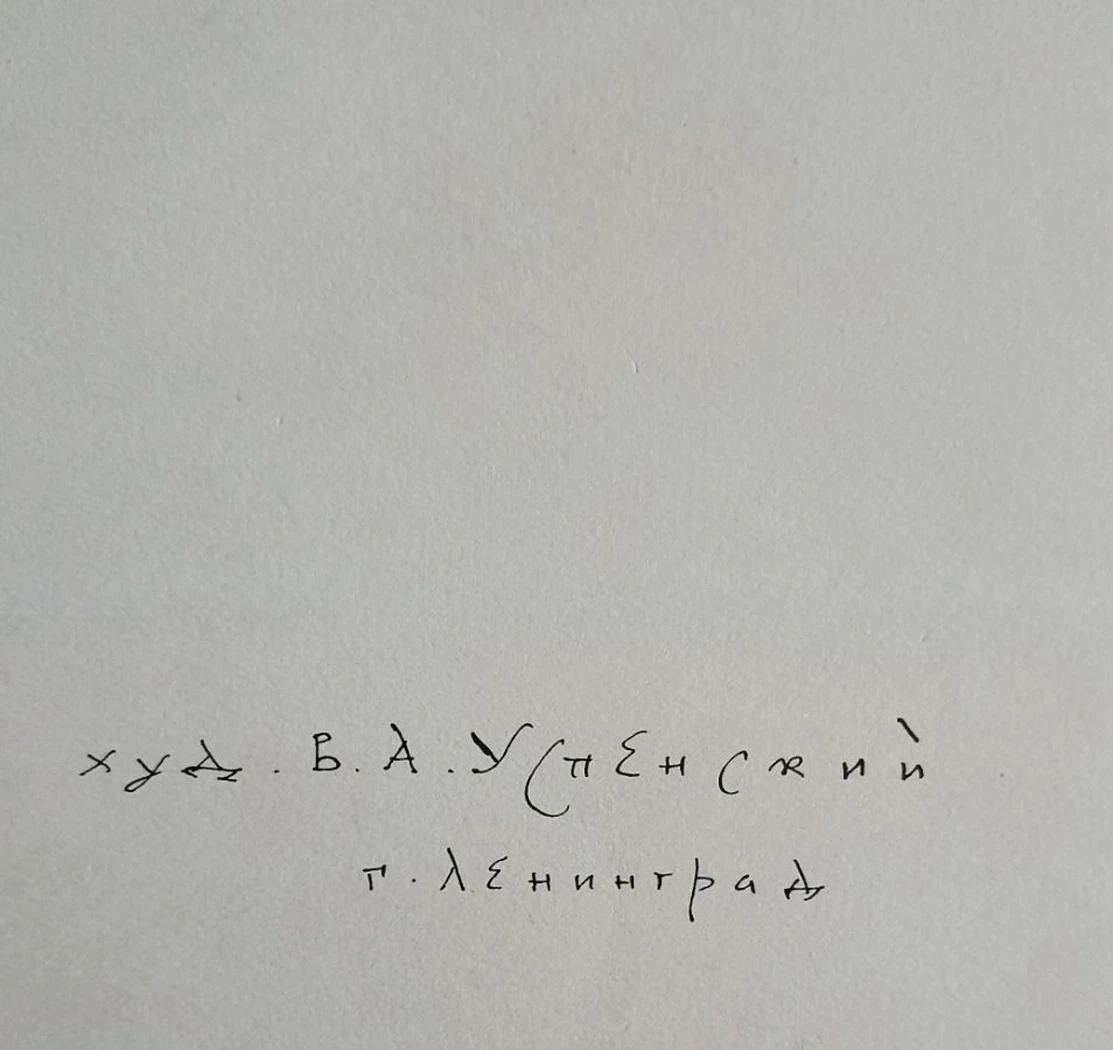 худ. В. А. Успенский
г. Ленинград